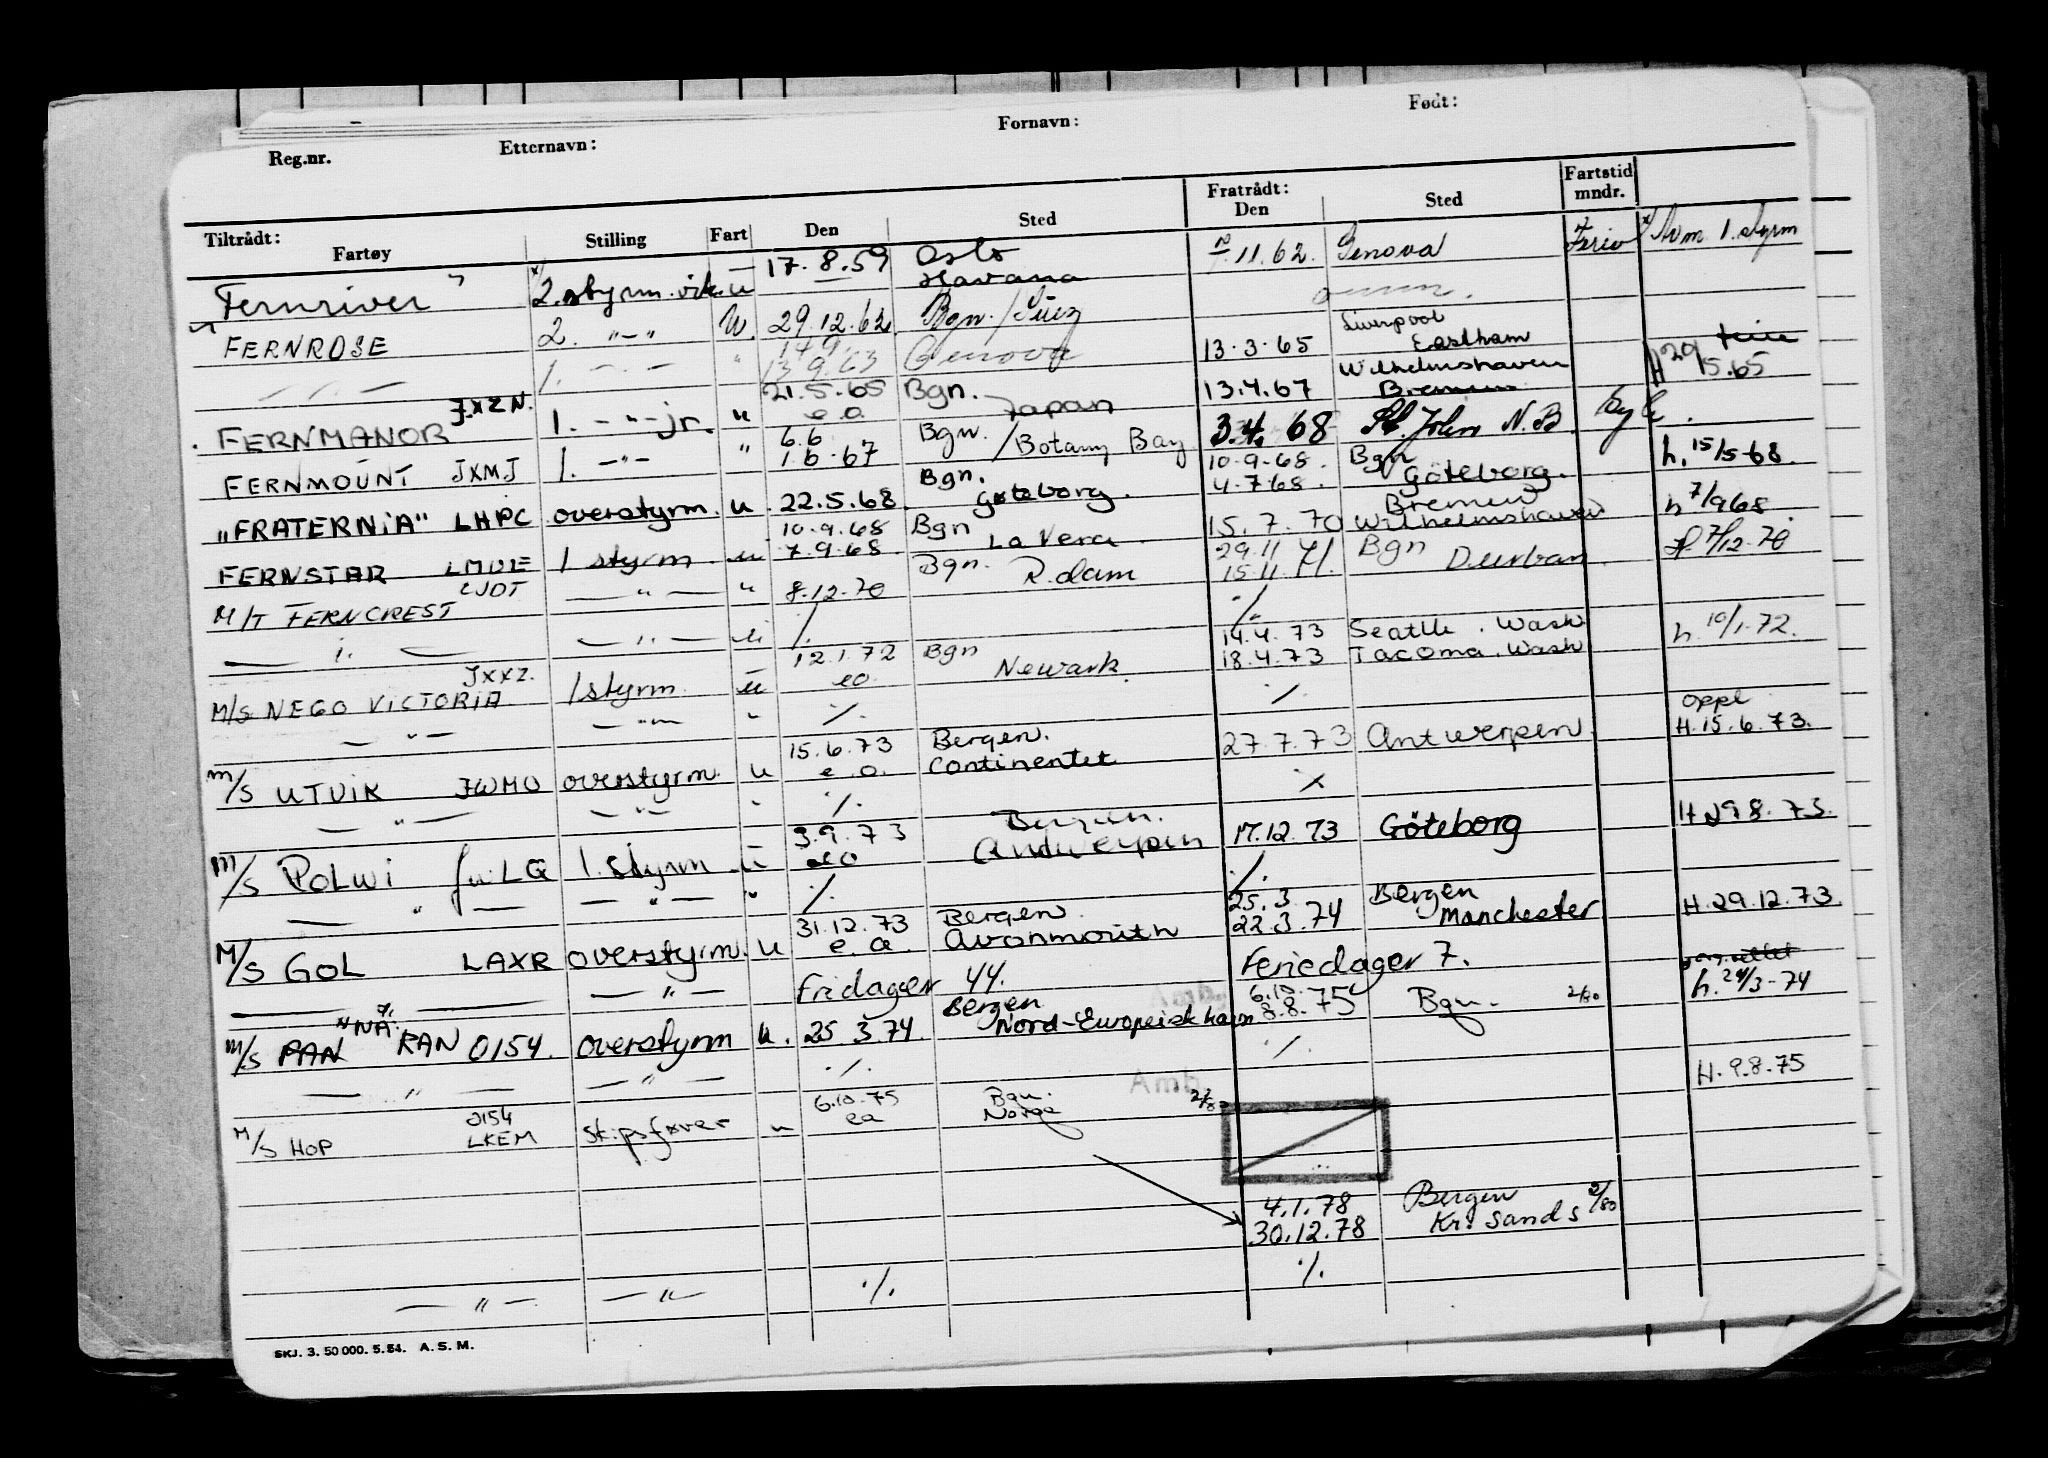 Reg.nr. Etternavn: Fornavn: Født:
Tiltrådt: Fratrådt:
Fartøy Stilling Fart Den Sted Den Sted Fartstid mndr.
Fernriver 2. styrm. vik. u 17.8.59 Oslo Havana 11.62. Genova Ferie 1. styrm
FERNROSE 2. -"- U. 29.12.62. Bgn./Suez
1. - " - " 14.9. 13.9.63 Genova 13.3.65 Liverpool Eastham
FERNMANOR JXZN. 1. -"- jr. u 21.5.65 e.o Bgn. Japan 13.4.67 Wilhelmshaven Bremen H 29/5.65 ferie
FERNMOUNT JXMJ 1. -"- " 6.6 1.6.67 Bgn. / Botany Bay 3.4.68 St. John N.B.
"FRATERNIA" LHPC overstyrm. u. 22.5.68. Bgn. Gøteborg. 10.9.68. 4.7.68. Bgn Göteborg. h. 15/5-68.
FERNSTAR LMVE 1 styrm u 10.9.68 7.9.68. Bgn La Vera 15.7.70 Bremen Wilhelmshaven h 7/9 68
M/T FERNCREST LJDT — " — " 8.12.70 Bgn. R.dam 29.11 15.11.71. Bgn Durban. H 7/12-70
— " — — " — u ./. ./.
M/S NEGO VICTORIA JXXZ. 1 styrm u 12.1.72 eo Bgn Newark. 14.4.73 18.4.73 Seattle. Wash Tacoma. Wash h. 10/1-72.
— " — — " — " ./. ./.
M/S UTVIK JWMO overstyrm. u 15.6.73 e.o. Bergen. Continentet 27.7.73 Antwerpen oppl H.15.6.73.
— " — — " — " ./. ./.
M/S POLWI 1. styrm u 3.9.73 eo Bergen. Antwerpen 17.12.73 Göteborg
— " — — " — " ./. ./.
M/S GOL LAXR overstyrm. u 31.12.73 e.a. Bergen Avonmouth 25.3 22.3.74 Bergen Manchester H.29.12.73.
— " — Fridager 44. Feriedager 7.
M/S RAN 0154. overstyrm u. 25.3.74. Bergen Nord-Europeisk havn 6.10. 8.8.75 Bgn. 2/80 h. 24/3-74
— " — — " — ./. Amb. ./.
M/S HOP 0154 LKEM Skipsfører u 6.10.75 ea Bgn. Norge 2/80 H. 9.8.75
4.1.78 Bergen
30.12.78 Kr. sand S 2/80
— " — — " — ./. ./.
SKJ. 3. 50 000. 5.54. A. S. M.